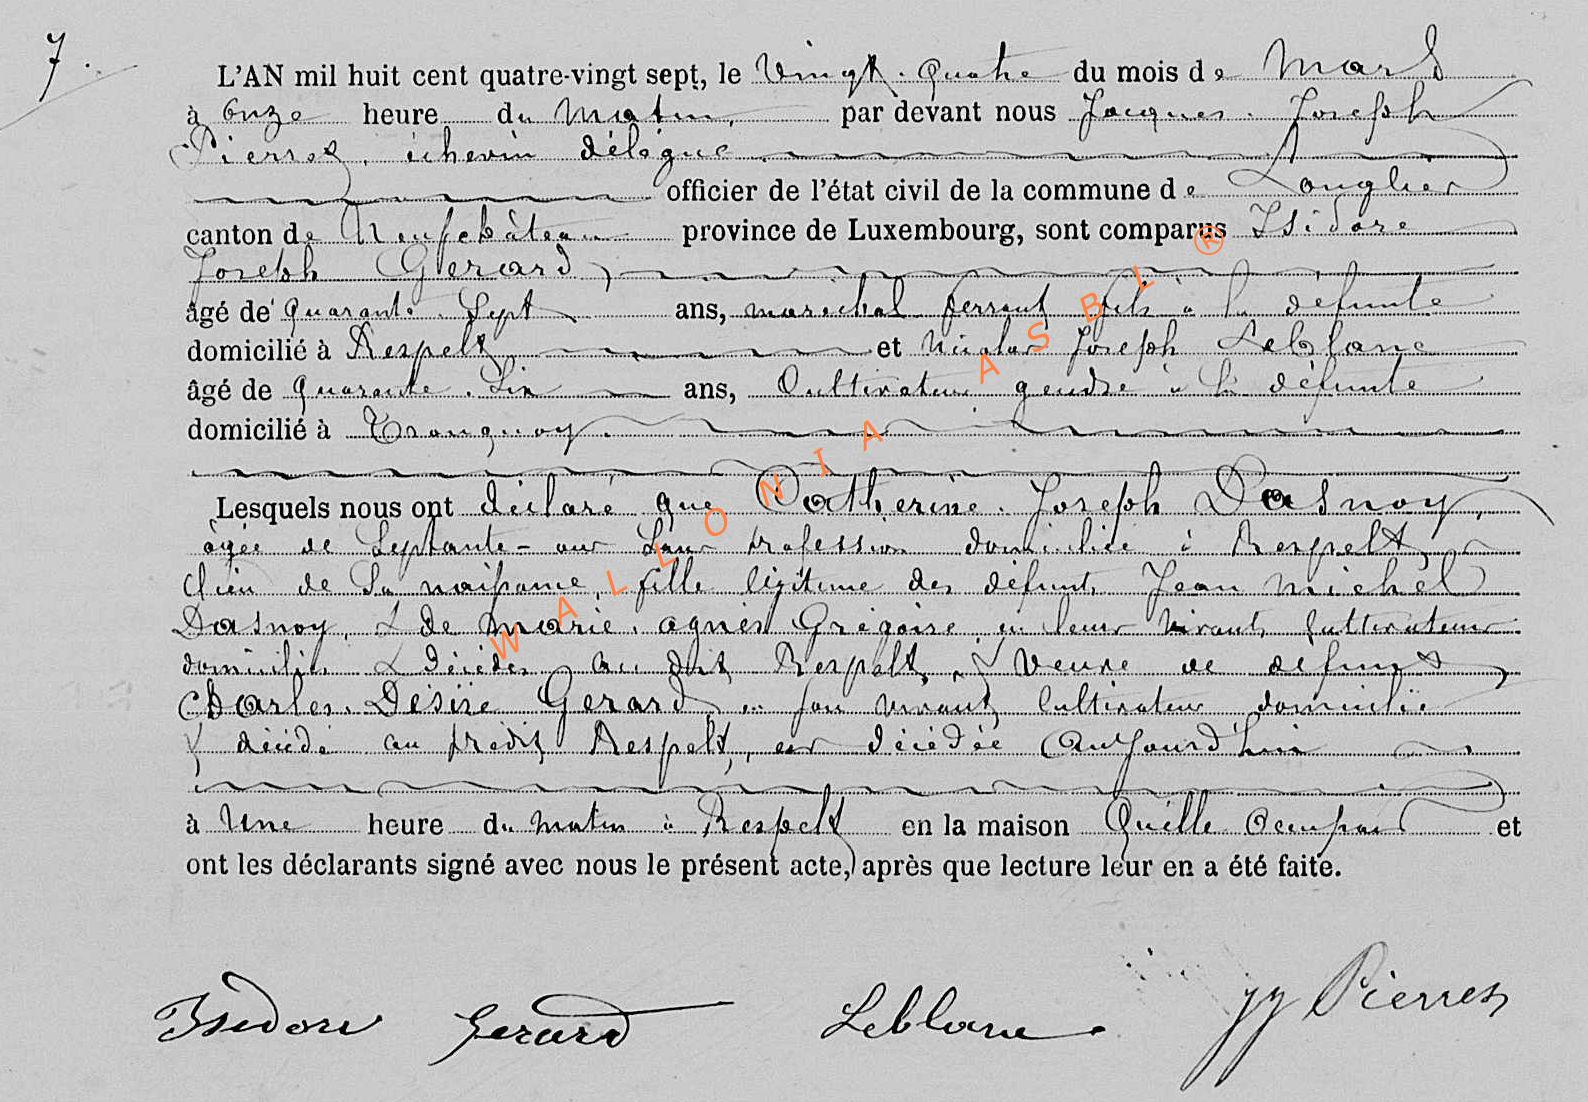 7.
L'AN mil huit cent quatre-vingt sept, le Vingt-quatre du mois de Mars
à onze heure du matin, par devant nous Jacques Joseph
Pierret, échevin délégué
officier de l'état civil de la commune de Longlier
canton de Neufchâteau province de Luxembourg, sont comparus Isidore
Joseph Gerard,
âgé de quarante Sept ans, maréchal ferrant fils à la défunte
domicilié à Respelt, et Nicolas Joseph Leblanc
âgé de quarante Six ans, Cultivateur gendre à la défunte
domicilié à Tronquoy
Lesquels nous ont déclaré que Catherine Joseph Dasnoy,
âgée de Septante-un ans Sans profession domiciliée à Respelt,
lieu de Sa naissance, fille légitime des défunts Jean Michel
Dasnoy, & de Marie agnès Grégoire, en leur vivant Cultivateurs
domiciliés & décédés au dit Respelt, & Veuve de défunt
Charles Désiré Gerard, en son vivant Cultivateur domicilié
& décédé au prédit Respelt, est décédée aujourd'hui
à Une heure du matin à Respelt en la maison Qu'elle occupait et
ont les déclarants signé avec nous le présent acte, après que lecture leur en a été faite.
Isidore Gerard Leblanc JJ Pierret
WALLONIA ASBL ®